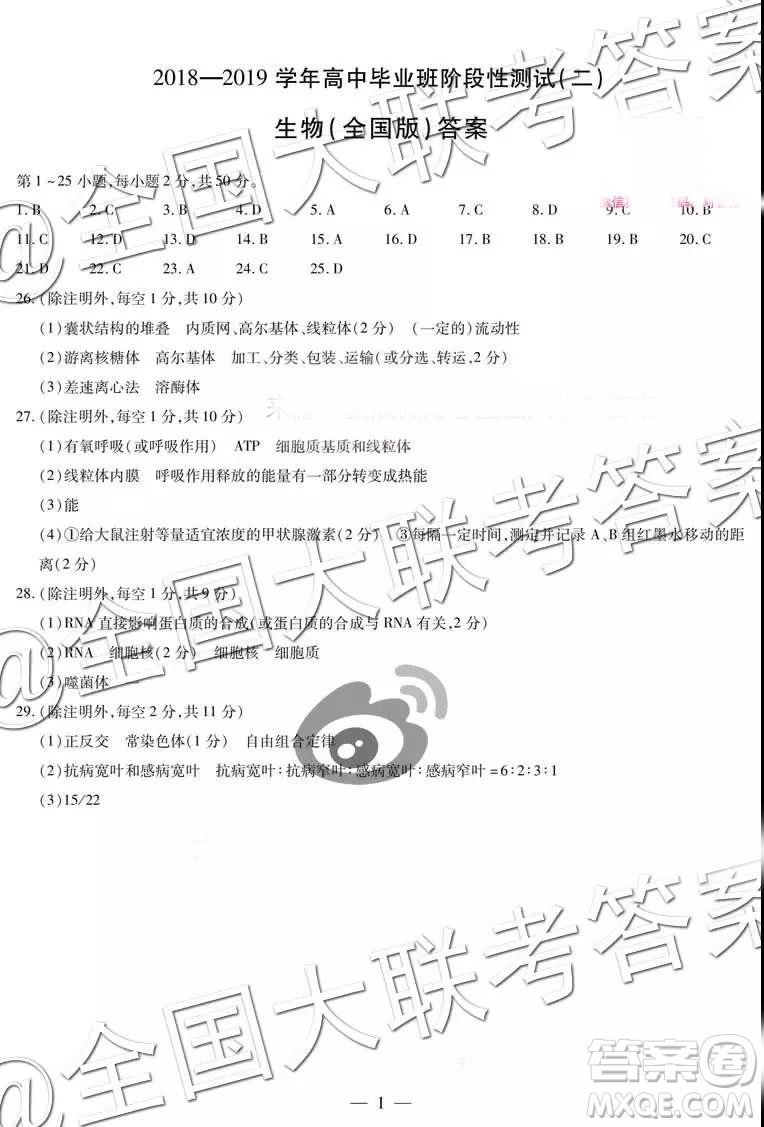 2018—2019 学年高中毕业班阶段性测试(二)
生物(全国版)答案
第 1 ~ 25 小题,每小题 2 分,共 50 分。
1. B 2. C 3. B 4. D 5. A 6. A 7. C 8. D 9. C 10. B
11. C 12. D 13. D 14. B 15. A 16. A 17. D 18. B 19. B 20. C
21. D 22. C 23. A 24. C 25. D
26. (除注明外,每空 1 分,共 10 分)
(1)囊状结构的堆叠 内质网、高尔基体、线粒体(2 分) (一定的)流动性
(2)游离核糖体 高尔基体 加工、分类、包装、运输(或分类、包装、转运,2 分)
(3)差速离心法 溶酶体
27. (除注明外,每空 1 分,共 10 分)
(1)有氧呼吸(或呼吸作用) ATP 细胞质基质和线粒体
(2)线粒体内膜 呼吸作用释放的能量有一部分转变成热能
(3)能
(4)①给大鼠注射等量适宜浓度的甲状腺激素(2 分) ③每隔一定时间,测定并记录 A、B 组红墨水移动的距
离(2 分)
28. (除注明外,每空 1 分,共 9 分)
(1)RNA 直接影响蛋白质的合成(或蛋白质的合成与 RNA 有关,2 分)
(2)RNA 细胞核(2 分) 细胞核 细胞质
(3)噬菌体
29. (除注明外,每空 2 分,共 11 分)
(1)正反交 常染色体(1 分) 自由组合定律
(2)抗病宽叶和感病宽叶 抗病宽叶∶抗病窄叶∶感病宽叶∶感病窄叶 = 6∶2∶3∶1
(3)15/22
@全国大联考答案
@全国大联考答案
@全国大联考答案
答案圈
MXQE.COM
— 1 —